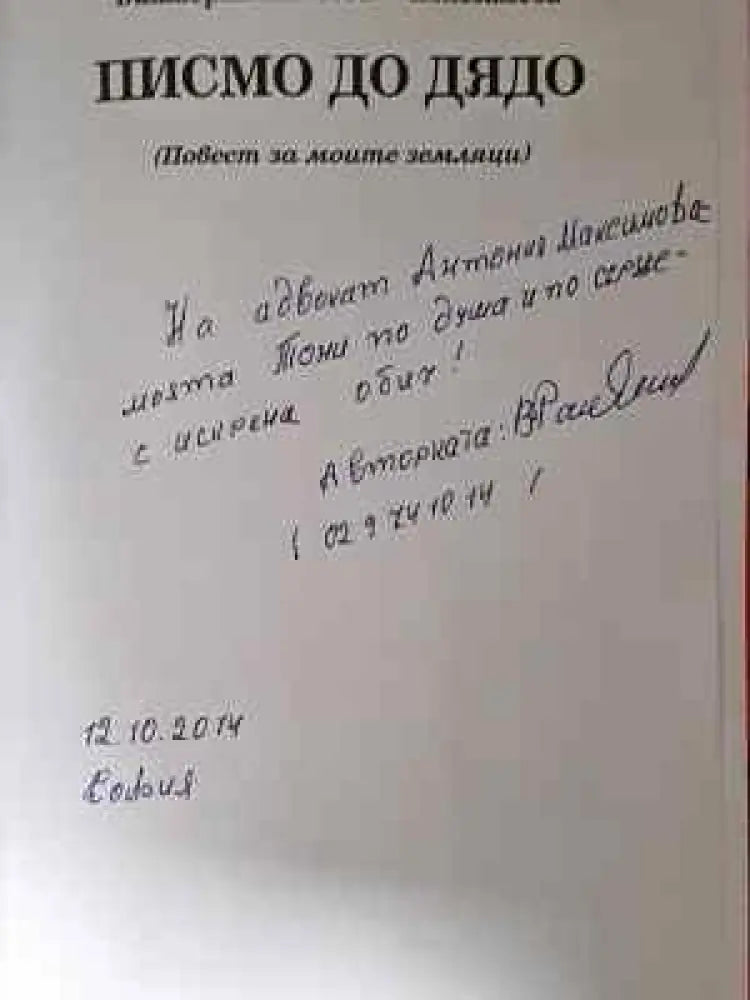 ПИСМО ДО ДЯДО
(Повест за моите земляци)
На адвокат Антония Максимова-
моята Тони по душа и по сърце-
с искрена обич!
Авторката:
( 02 9 74 10 14 )
12.10.2014
София